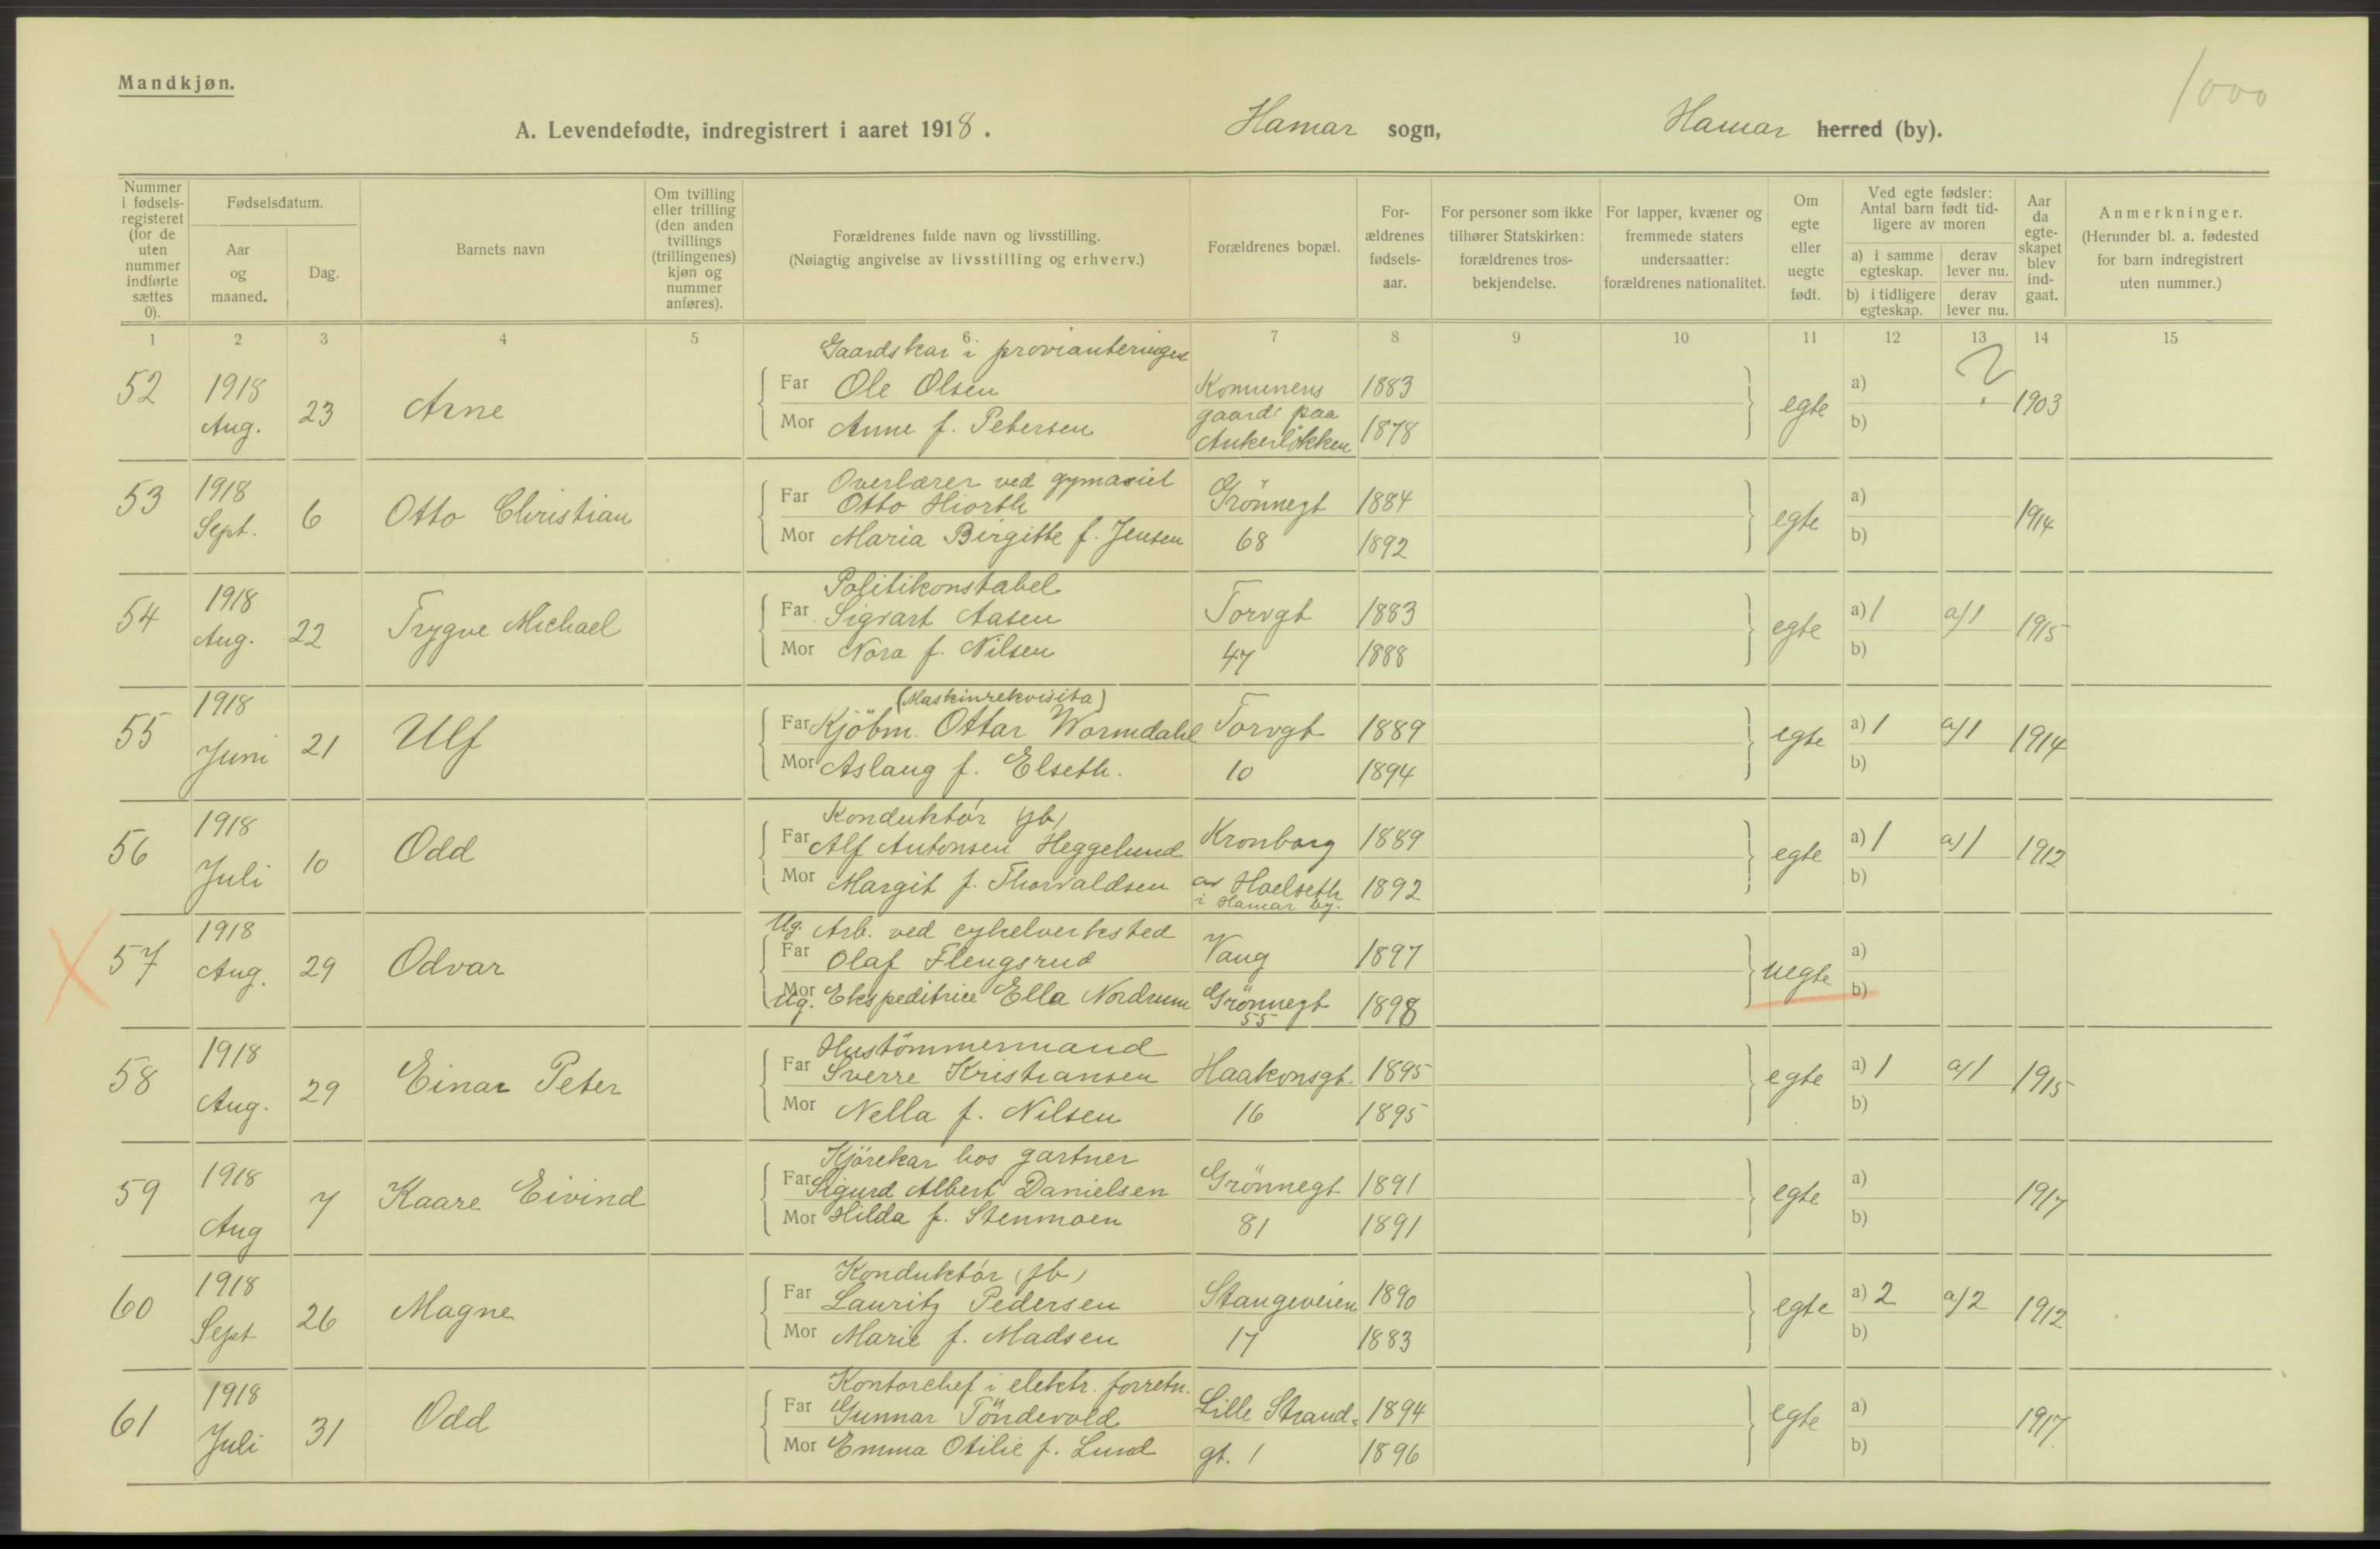 Mandkjøn.
1000
A. Levendefødte, indregistrert i aaret 1918. Hamar sogn, Hamar herred (by).
Nummer i fødselsregisteret (for de uten nummer indførte sættes 0).
Fødselsdatum.
Aar og maaned.
Dag.
Barnets navn
Om tvilling eller trilling (den anden tvillings (trillingenes) kjøn og nummer anføres).
Forældrenes fulde navn og livsstilling.
(Nøiagtig angivelse av livsstilling og erhverv.)
Forældrenes bopæl.
Forældrenes fødselsaar.
For personer som ikke tilhører Statskirken: forældrenes trosbekjendelse.
For lapper, kvæner og fremmede staters undersaatter: forældrenes nationalitet.
Om egte eller uegte født.
Ved egte fødsler: Antal barn født tidligere av moren
a) i samme egteskap.
derav lever nu.
b) i tidligere egteskap.
derav lever nu.
Aar da egteskapet blev indgaat.
Anmerkninger.
(Herunder bl. a. fødested for barn indregistrert uten nummer.)
1 2 3 4 5 6 7 8 9 10 11 12 13 14 15
Gaardskar i provianteringen
52 1918 Aug. 23 Arne
Far Ole Olsen Komunens 1883
Mor Anne f. Petersen gaard paa Ankerløkken 1878
egte a) b) ? 1903
Overlærer ved gymasiet
53 1918 Sept. 6 Otto Christian
Far Otto Hiorth Grönnegt 1884
Mor Maria Birgitte f. Jensen 68 1892
egte a) b) 1914
Politikonstabel
54 1918 Aug. 22 Trygve Michael
Far Sigvart Aasen Torvgt 1883
Mor Nora f. Nilsen 47 1888
egte a) 1 a/1 b) 1915
(Maskinrekvisita)
55 1918 Juni 21 Ulf
Far Kjöbm. Ottar Wormdahl Torvgt 1889
Mor Aslaug f. Elseth. 10 1894
egte a) 1 a/1 b) 1914
Konduktör (jb)
56 1918 Juli 10 Odd
Far Alf Antonsen Heggelund Kronborg 1889
Mor Margit f. Thorvaldsen av Hoelseth i Hamar by. 1892
egte a) 1 a/1 b) 1912
Ug. Arb. ved cykelverksted
57 1918 Aug. 29 Odvar
Far Olaf Flengsrud Vang 1897
Mor Ug. Ekspeditrice Ella Nordrum Grönnegt 55 1898
uegte a) b)
Hustömmermand
58 1918 Aug. 29 Einar Peter
Far Sverre Kristiansen Haakonsgt. 1895
Mor Nella f. Nilsen 16 1895
egte a) 1 a/1 b) 1915
Kjörekar hos gartner
59 1918 Aug 7 Kaare Eivind
Far Sigurd Albert Danielsen Grönnegt 1891
Mor Hilda f. Stenmoen 81 1891
egte a) b) 1917
Konduktör (jb)
60 1918 Sept 26 Magne
Far Lauritz Pedersen Stangeveien 1890
Mor Marie f. Madsen 17 1883
egte a) 2 a/2 b) 1912
Kontorchef i elektr. forretn.
61 1918 Juli 31 Odd
Far Gunnar Töndevold Lille Strand- 1894
Mor Emma Otilie f. Lund gt. 1 1896
egte a) b) 1917